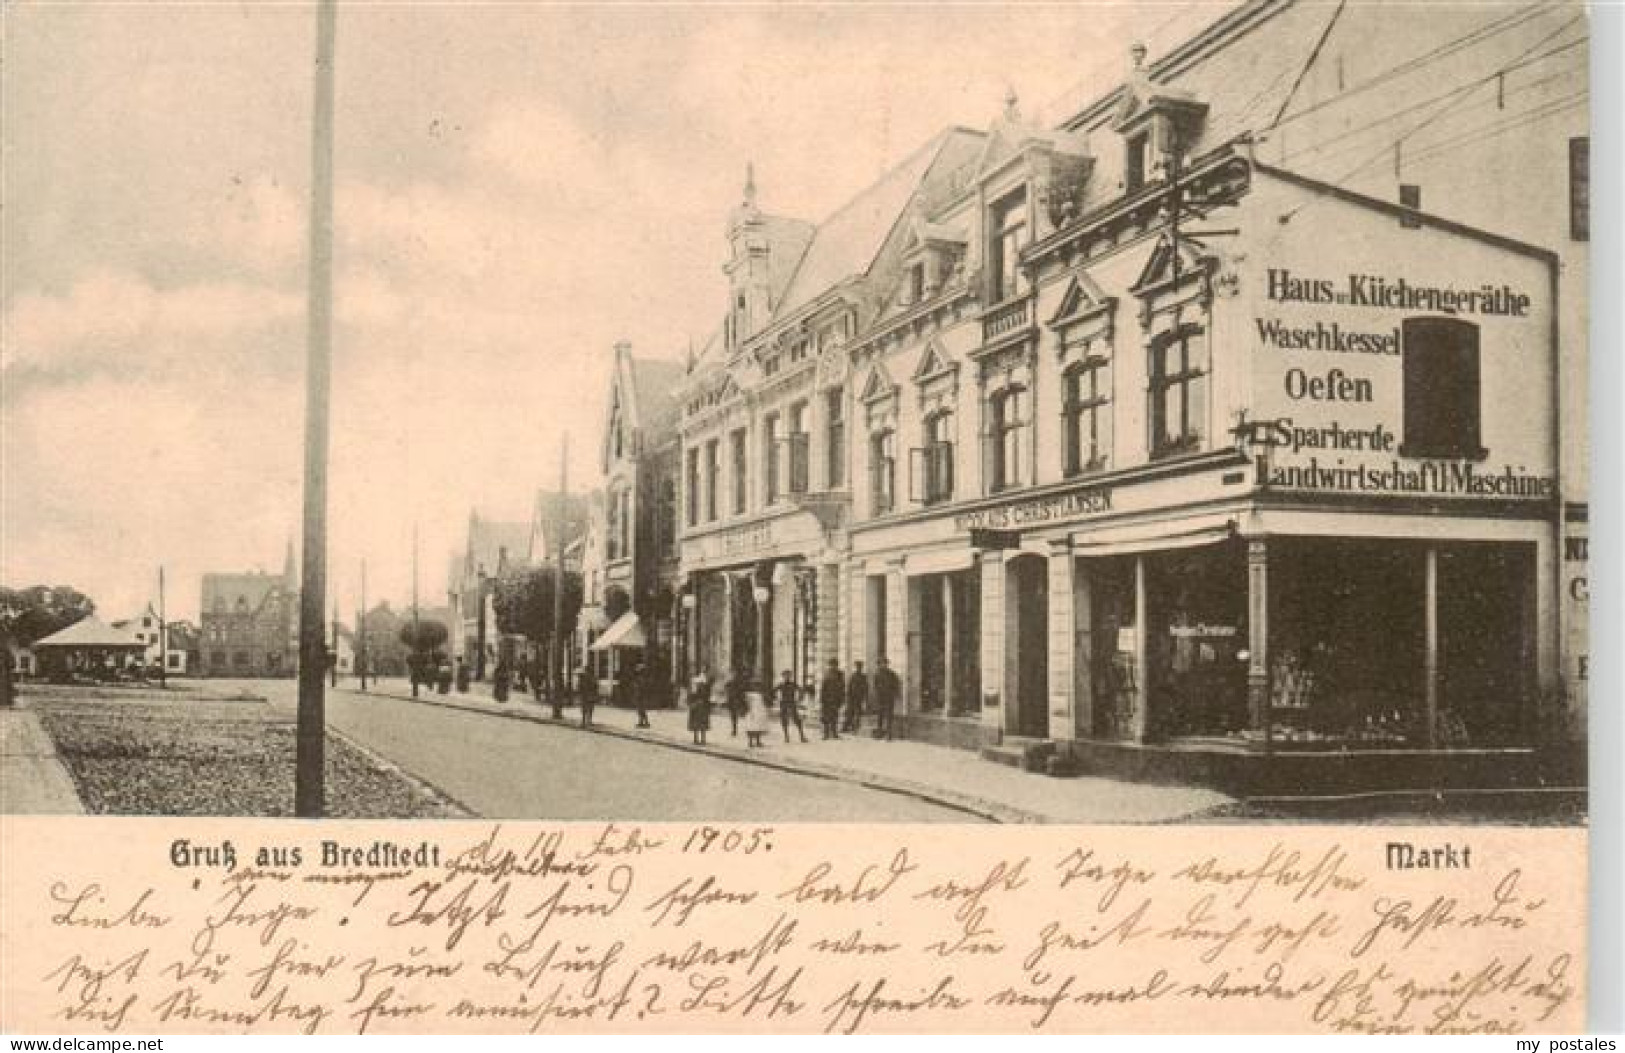 Haus u. Küchengeräthe
Waschkessel
Oefen
Sparherde
Landwirtschaftl. Maschinen
NICOLAUS CHRISTIANSEN
Gruß aus Bredstedt
Markt
d. 10 Febr 1905.
von meinen
Liebe Inge! Jetzt sind schon bald acht Tage verflossen
seit Du hier zum Besuch warst wie die Zeit doch geht Hast du
dich Sonntag fein amüsiert? Bitte schreibe auch mal wieder Es grüßt dich
dein
my postales
www.delcampe.net